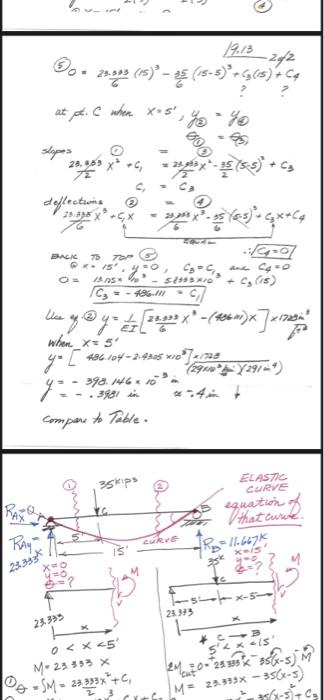 19.13 2of2
⑤ 0 = 23.333/6 (15)³ - 35/6 (15-5)³ + C₃(15) + C₄
? ?
at pt. C when x=5', y② = y④
θ① = θ③
slopes ① = ③
23.333/2 x² + C₁ = 23.333/2 x² - 35/2 (5-5)² + C₃
C₁ = C₃
deflections ② = ④
23.333/6 x³ + C₁x = 23.333/6 x³ - 35/6 (5-5)³ + C₃x + C₄
EQUAL ∴ C₄=0
BACK TO TOP ⑤
@ x=15', y=0, C₃=C₁ and C₄=0
0 = 13.125 x 10³ - 5.8333x10³ + C₃(15)
C₃ = -486.111 = C₁
Use eq ② y = 1/EI [23.333/6 x³ - (486.111)x] x 1728 in³/ft³
when x=5'
y = [486.104 - 2.4305 x10³] x1728 / (29x10³ ksi)(291 in⁴)
y = - 398.146 x 10⁻³ in
y = - .3981 in ≈ -.4 in ↓
Compare to Table.
① 35 kips ② ELASTIC
CURVE
equation of
that curve.
RAx=0 C B
RAy=
23.333K
5'
15'
CURVE
RB = 11.667K
x=0
y=0
θ=?
x=15'
y=0
θ=?
M
V
35K
C
5' x-5'
M
V
23.333
x
23.333
x
0 < x < 5'
C → B
5' < x < 15'
M = 23.333 x
ΣMcut = 0 = 23.333x - 35(x-5) - M
M = 23.333x - 35(x-5)
① θ = ∫M = 23.333x²/2 + C₁